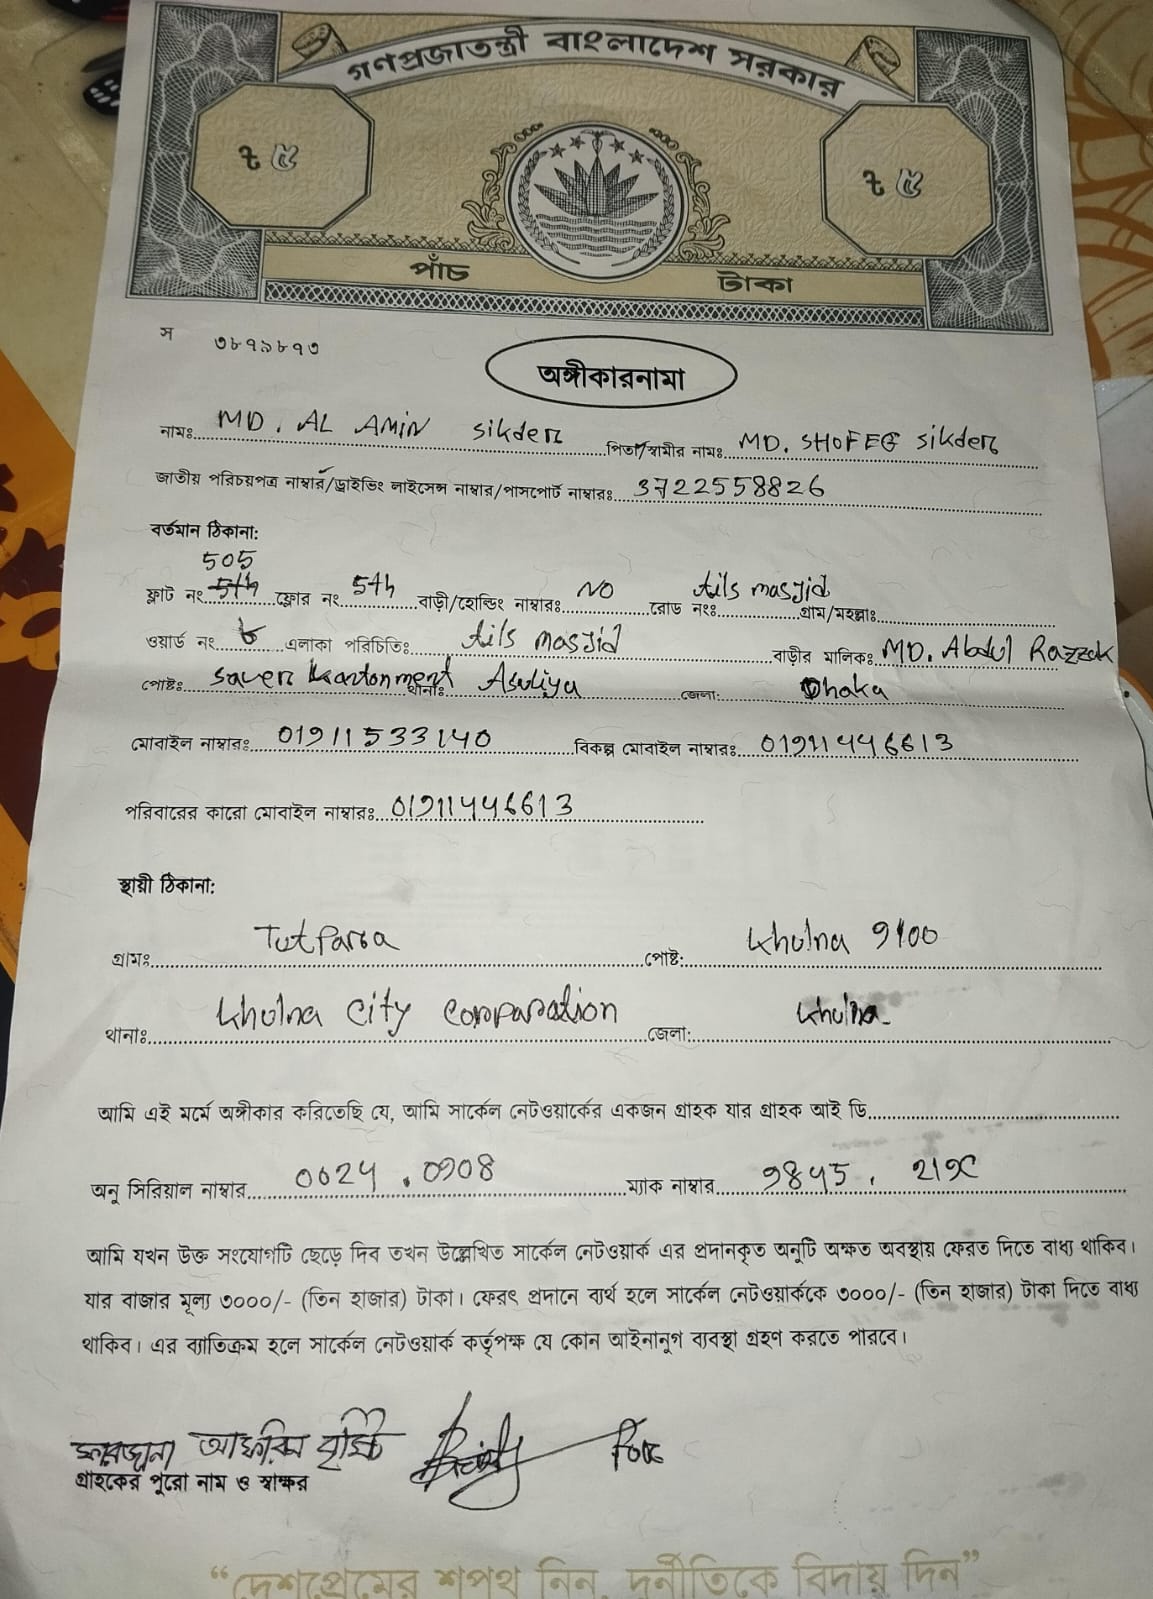 গণপ্রজাতন্ত্রী বাংলাদেশ সরকার
৳ ৫ ৳ ৫
পাঁচ টাকা
স ৩৮৭৯৮৭৩
অঙ্গীকারনামা
নামঃ MD. AL AMIN Sikder পিতা/স্বামীর নামঃ MD. SHOFEG Sikder
জাতীয় পরিচয়পত্র নাম্বার/ড্রাইভিং লাইসেন্স নাম্বার/পাসপোর্ট নাম্বারঃ 3722558826
বর্তমান ঠিকানা:
505
ফ্লাট নং 5th ফ্লোর নং 5th বাড়ী/হোল্ডিং নাম্বারঃ NO রোড নংঃ tils masjid গ্রাম/মহল্লাঃ
ওয়ার্ড নং 6 এলাকা পরিচিতিঃ tils masjid বাড়ীর মালিকঃ MD. Abdul Razzak
পোষ্টঃ Saver Kantonment থানাঃ Asuliya জেলা: Dhaka
মোবাইল নাম্বারঃ 01911533140 বিকল্প মোবাইল নাম্বারঃ 01911446613
পরিবারের কারো মোবাইল নাম্বারঃ 01911446613
স্থায়ী ঠিকানা:
গ্রামঃ Tutpara পোষ্ট: Khulna 9100
থানাঃ Khulna City Corparation জেলা: Khulna
আমি এই মর্মে অঙ্গীকার করিতেছি যে, আমি সার্কেল নেটওয়ার্কের একজন গ্রাহক যার গ্রাহক আই ডি
অনু সিরিয়াল নাম্বার 0024 . 0908 ম্যাক নাম্বার 9845 . 219C
আমি যখন উক্ত সংযোগটি ছেড়ে দিব তখন উল্লেখিত সার্কেল নেটওয়ার্ক এর প্রদানকৃত অনুটি অক্ষত অবস্থায় ফেরত দিতে বাধ্য থাকিব।
যার বাজার মূল্য ৩০০০/- (তিন হাজার) টাকা। ফেরৎ প্রদানে ব্যর্থ হলে সার্কেল নেটওয়ার্ককে ৩০০০/- (তিন হাজার) টাকা দিতে বাধ্য
থাকিব। এর ব্যাতিক্রম হলে সার্কেল নেটওয়ার্ক কর্তৃপক্ষ যে কোন আইনানুগ ব্যবস্থা গ্রহণ করতে পারবে।
ফারজানা আফরিন বৃষ্টি For
গ্রাহকের পুরো নাম ও স্বাক্ষর
“দেশপ্রেমের শপথ নিন, দুর্নীতিকে বিদায় দিন”